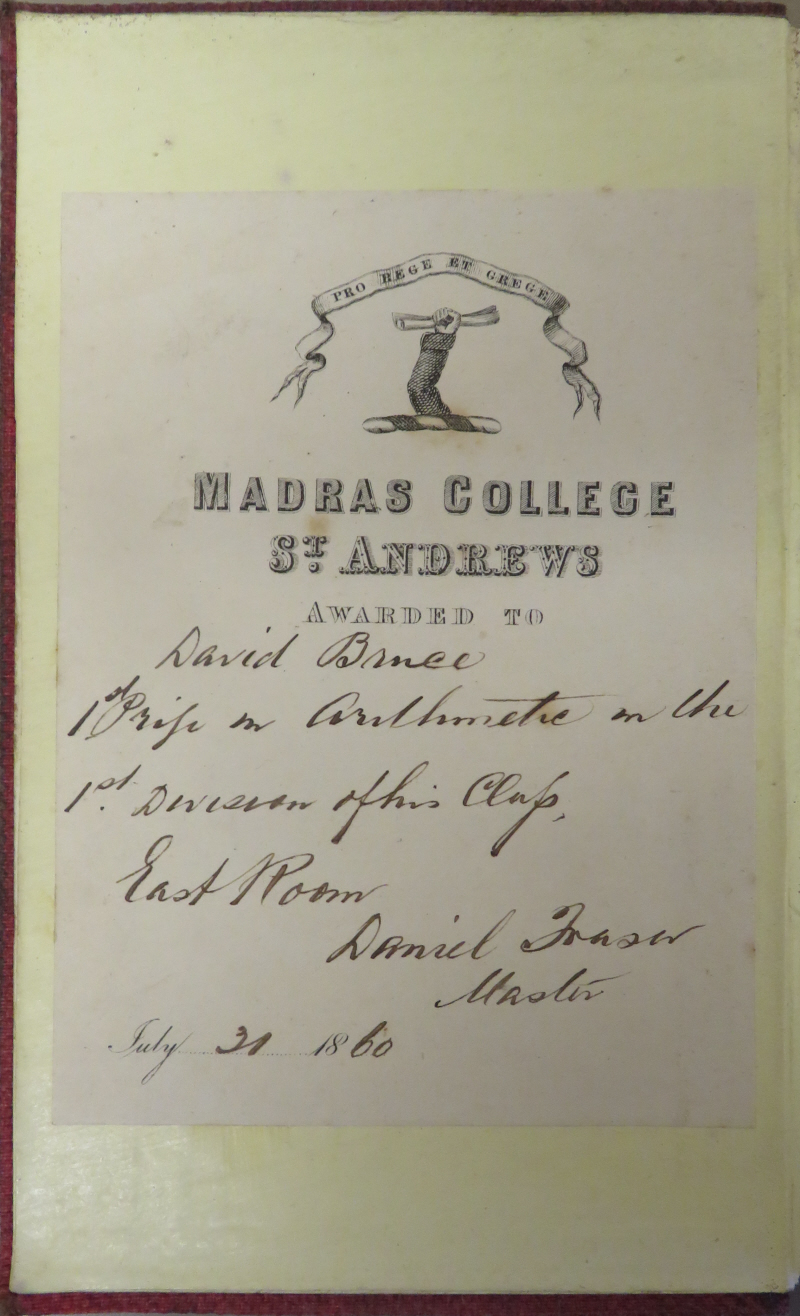 PRO REGE ET GREGE
MADRAS COLLEGE
ST. ANDREWS
AWARDED TO
David Bruce
1st Prize in Arithmetic in the
1st. Division of his Claſs,
East Room
Daniel Fraser
Master
July 31 1860